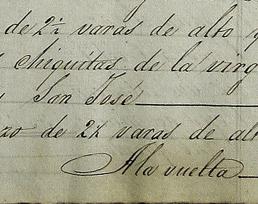 de 2½ varas de alto y
chiquitas de la virg
San José
zo de 2½ varas de al
A la vuelta